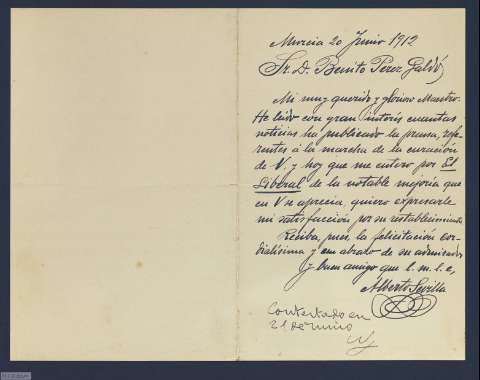 Murcia 20 Junio 1912
Sr. D. Benito Perez Galdós
Mi muy querido y glorioso Maestro:
He leido con gran interés cuantas
noticias ha publicado la prensa, refe-
rentes á la marcha de la curación
de V. y hoy que me entero por El
Liberal de la notable mejoría que
en V se aprecia, quiero expresarle
mi satisfacción por su restablecimiento
Reciba, pues, la felicitación cor-
dialísima y un abrazo de su admirador
y buen amigo que l. m. l. e,
Alberto Sevilla
Contestado en
21 de